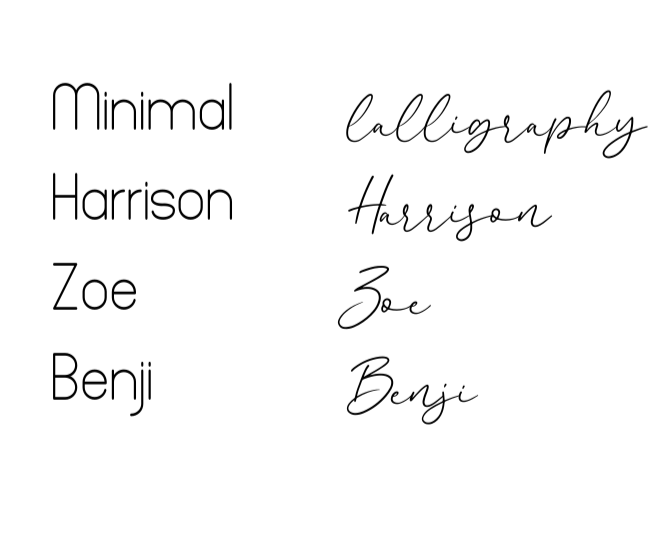 Minimal Calligraphy
Harrison Harrison
Zoe Zoe
Benji Benji